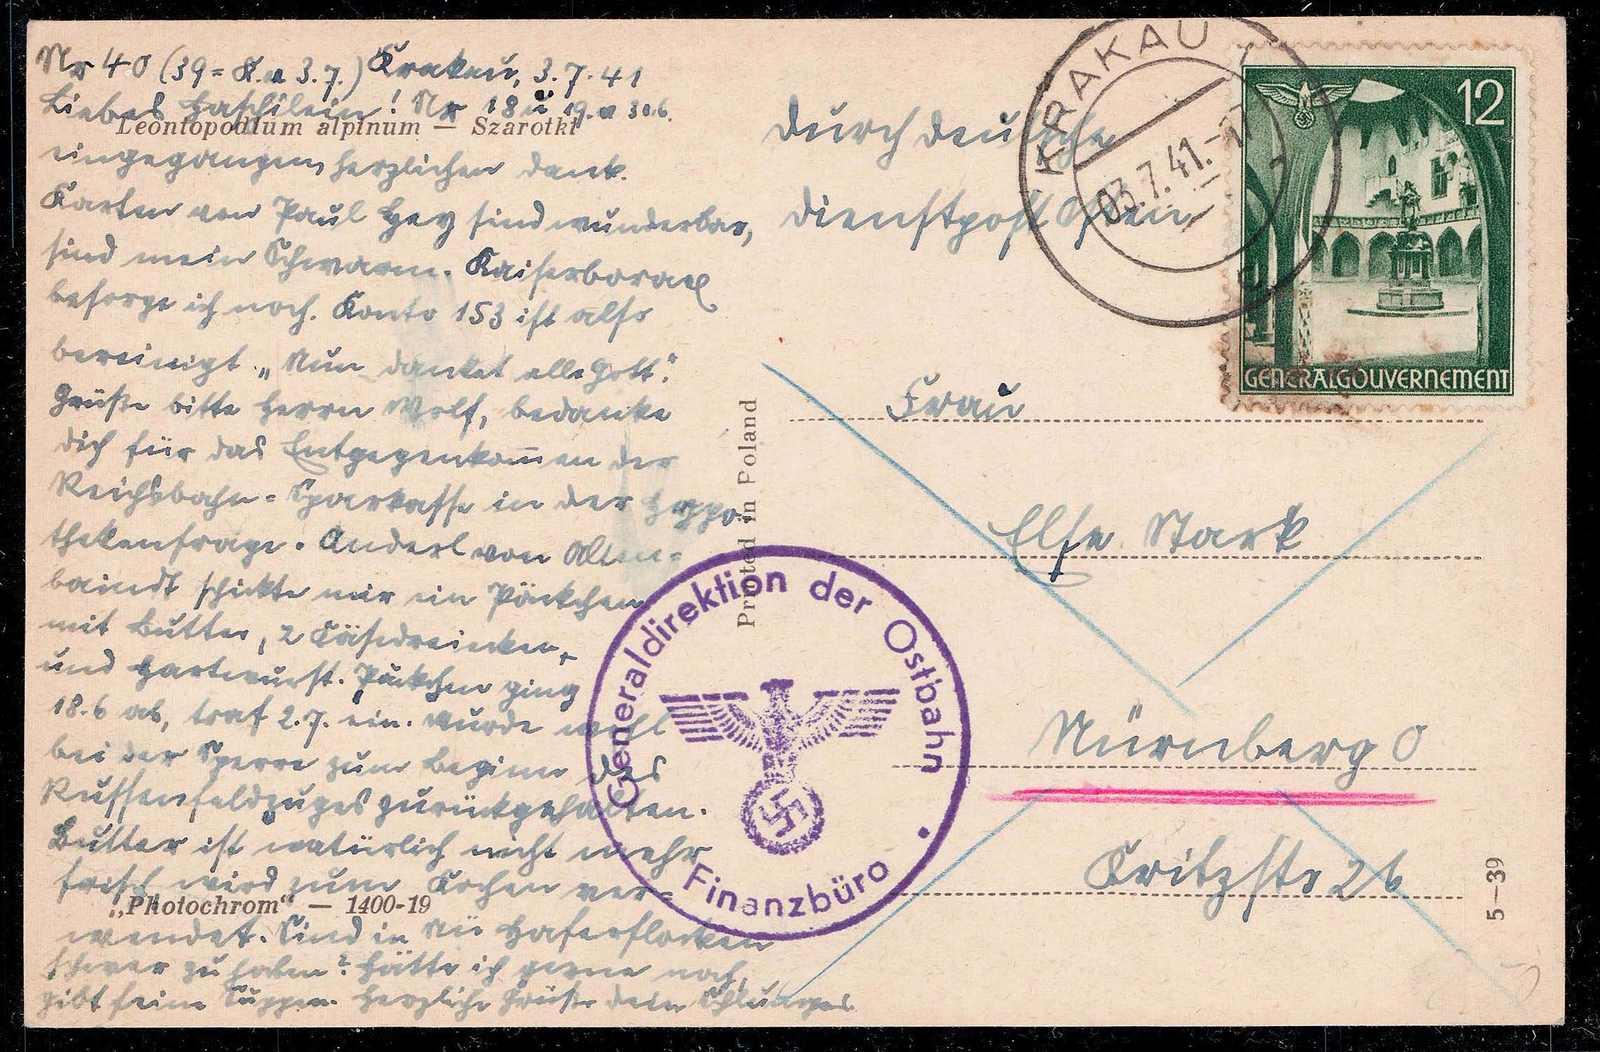 Nr 40 (39 = K. a 3.7.) Krakau, 3.7.41
Liebes Haschilein! Nr 18 u 19. a 30.6.
Leontopodium alpinum — Szarotki
eingegangen, herzlichen Dank.
Karten von Paul Hey sind wunderbar,
sind mein Schwarm. Kaiserborax
besorge ich noch. Konto 153 ist also
bereinigt. „Nun danket alle Gott".
Grüße bitte Herrn Wolf, bedanke
dich für das Entgegenkommen der
Reichsbahn-Sparkasse in der Hypo-
thekenfrage. Anderl von
schickte mir ein Päckchen
mit Butter, 2
und Hartwurst. Päckchen ging
18.6 ab, traf 2.7. ein. Wurde wohl
bei der Sperre zum Beginn des
Russenfeldzuges zurückgehalten.
Butter ist natürlich nicht mehr
frisch, wird zum Kochen ver-
„Photochrom" — 1400-19
wendet. Sind in Nü Haferflocken
schwer zu haben? Hätte ich gerne noch,
gibt feine Suppen. Herzliche Grüße dein
Printed in Poland
durch deutsche
Dienstpost Osten
KRAKAU
03.7.41.-17
12
GENERALGOUVERNEMENT
Frau
Else Stark
Nürnberg O
Kritzstr 26
Generaldirektion der Ostbahn
Finanzbüro
5—39